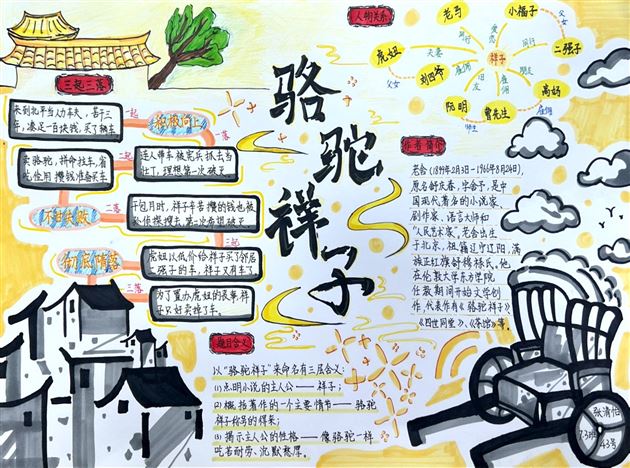 骆驼祥子
三起三落
来到北平当人力车夫，苦干三
年，凑足一百块钱，买了辆车
积极向上
一起
一落
连人带车被宪兵抓去当
壮丁，理想第一次破灭。
卖骆驼，拼命拉车，省
吃俭用攒钱准备买车
二起
不甘失败
二落
干包月时，祥子辛苦攒的钱也被
孙侦探搜去，第二次希望破灭
三起
虎妞以低价给祥子买了邻居
二强子的车，祥子又有车了
彻底堕落
三落
为了置办虎妞的丧事，祥
子只好卖掉了车。
题目含义
以“骆驼祥子”来命名有三层含义：
(1) 点明小说的主人公——祥子；
(2) 概括著作的一个主要情节——骆驼
祥子称号的得来；
(3) 揭示主人公的性格——像骆驼一样
吃苦耐劳、沉默憨厚。
人物关系
老马
小福子
父女
二强子
虎妞
夫妻
祥子
同行
父女
刘四爷
雇佣
朋友
高妈
雇佣
曹先生
阮明
师生
作者简介
老舍（1899年2月3日—1966年8月24日），
原名舒庆春，字舍予，是中
国现代著名的小说家、
剧作家、语言大师和
“人民艺术家”。老舍出生
于北京，祖籍辽宁辽阳，满
族正红旗舒穆禄氏。他
在伦敦大学东方学院
任教期间开始文学创
作，代表作有《骆驼祥子》
《四世同堂》、《茶馆》等。
张清怡
7.3班
43号